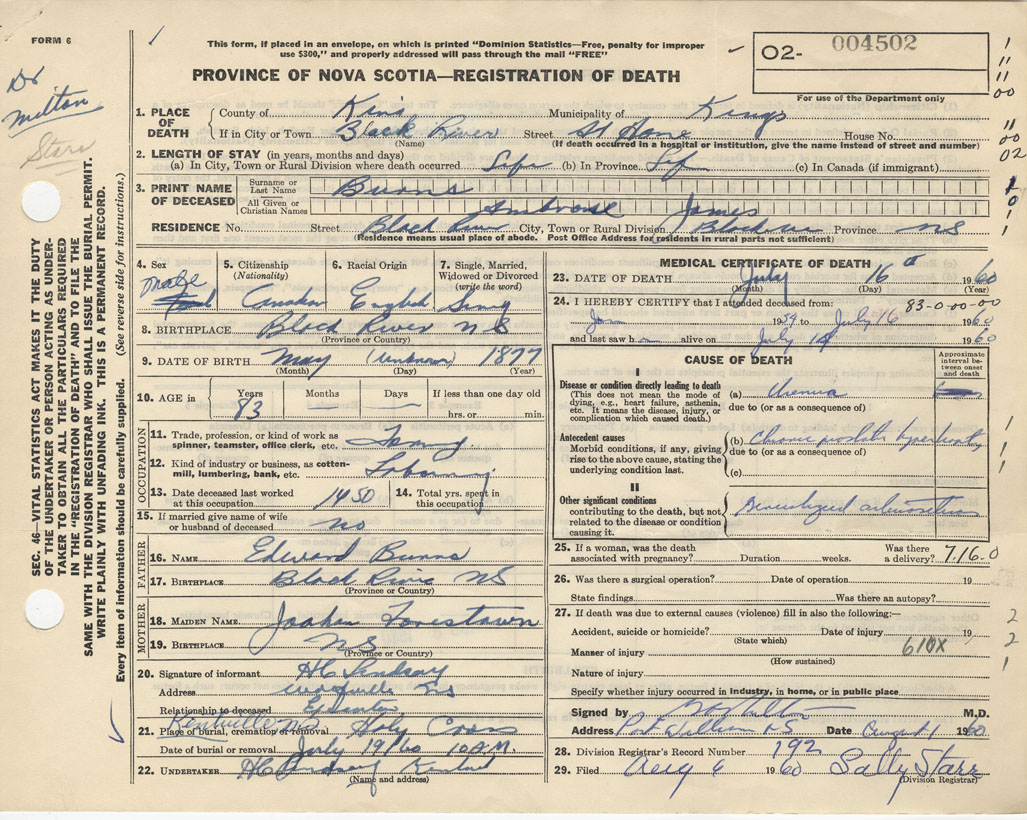 FORM 6
This form, if placed in an envelope, on which is printed "Dominion Statistics—Free, penalty for improper
use $300," and properly addressed will pass through the mail "FREE"
PROVINCE OF NOVA SCOTIA—REGISTRATION OF DEATH
O2- 004502
For use of the Department only
Dr
Milton
Starr
1
11
11
00
11
00
02
1
0
1
SEC. 46—VITAL STATISTICS ACT MAKES IT THE DUTY
OF THE UNDERTAKER OR PERSON ACTING AS UNDER-
TAKER TO OBTAIN ALL THE PARTICULARS REQUIRED
IN THE "REGISTRATION OF DEATH" AND TO FILE THE
SAME WITH THE DIVISION REGISTRAR WHO SHALL ISSUE THE BURIAL PERMIT.
WRITE PLAINLY WITH UNFADING INK. THIS IS A PERMANENT RECORD.
Every item of information should be carefully supplied. (See reverse side for instructions.)
1. PLACE OF DEATH
County of Kings Municipality of Kings
If in City or Town Black River Street St Home House No.
(Name) (If death occurred in a hospital or institution, give the name instead of street and number)
2. LENGTH OF STAY (in years, months and days)
(a) In City, Town or Rural Division where death occurred Life (b) In Province Life (c) In Canada (if immigrant)
3. PRINT NAME OF DECEASED
Surname or Last Name Burns
All Given or Christian Names Ambrose James
RESIDENCE No. Street Black River City, Town or Rural Division Province NS
(Residence means usual place of abode. Post Office Address for residents in rural parts not sufficient)
4. Sex Male
5. Citizenship (Nationality) Canadian
6. Racial Origin English
7. Single, Married, Widowed or Divorced (write the word) Single
8. BIRTHPLACE Black River NS
(Province or Country)
9. DATE OF BIRTH May (Unknown) 1877
(Month) (Day) (Year)
10. AGE in Years 83 Months — Days — If less than one day old hrs. or min.
OCCUPATION
11. Trade, profession, or kind of work as spinner, teamster, office clerk, etc.
12. Kind of industry or business, as cotton-mill, lumbering, bank, etc. Labouring
13. Date deceased last worked at this occupation 1450
14. Total yrs. spent in this occupation
15. If married give name of wife or husband of deceased no
FATHER
16. NAME Edward Burns
17. BIRTHPLACE Black River NS
(Province or Country)
MOTHER
18. MAIDEN NAME
19. BIRTHPLACE NS
(Province or Country)
20. Signature of informant HC Lindsay
Address NS
Relationship to deceased
21. Place of burial, cremation or removal Kentville NS Holy Cross
Date of burial or removal July 19/60 10 A.M.
22. UNDERTAKER HC Lindsay
(Name and address)
MEDICAL CERTIFICATE OF DEATH
23. DATE OF DEATH July 16th 1960
(Month) (Day) (Year)
24. I HEREBY CERTIFY that I attended deceased from: 83-0-00-00
Jan 1959 to July 16 1960
and last saw h m alive on July 14 1960
CAUSE OF DEATH
Approximate interval between onset and death
I
Disease or condition directly leading to death
(This does not mean the mode of dying, e.g., heart failure, asthenia, etc. It means the disease, injury, or complication which caused death.)
(a) Uremia
due to (or as a consequence of)
Antecedent causes
Morbid conditions, if any, giving rise to the above cause, stating the underlying condition last.
(b) Chronic prostatic hypertrophy
due to (or as a consequence of)
(c)
II
Other significant conditions
contributing to the death, but not related to the disease or condition causing it.
Generalized
1
1
1
25. If a woman, was the death associated with pregnancy? Duration weeks. Was there a delivery? 7.16.0
26. Was there a surgical operation? Date of operation 19
State findings Was there an autopsy?
27. If death was due to external causes (violence) fill in also the following:—
Accident, suicide or homicide? Date of injury 19
(State which)
Manner of injury 610X
(How sustained)
Nature of injury
Specify whether injury occurred in industry, in home, or in public place
2
2
1
Signed by M.D.
Address Port Williams NS Date August 1 1960
28. Division Registrar's Record Number 192
29. Filed Aug 6 1960 Sally Starr
(Division Registrar)